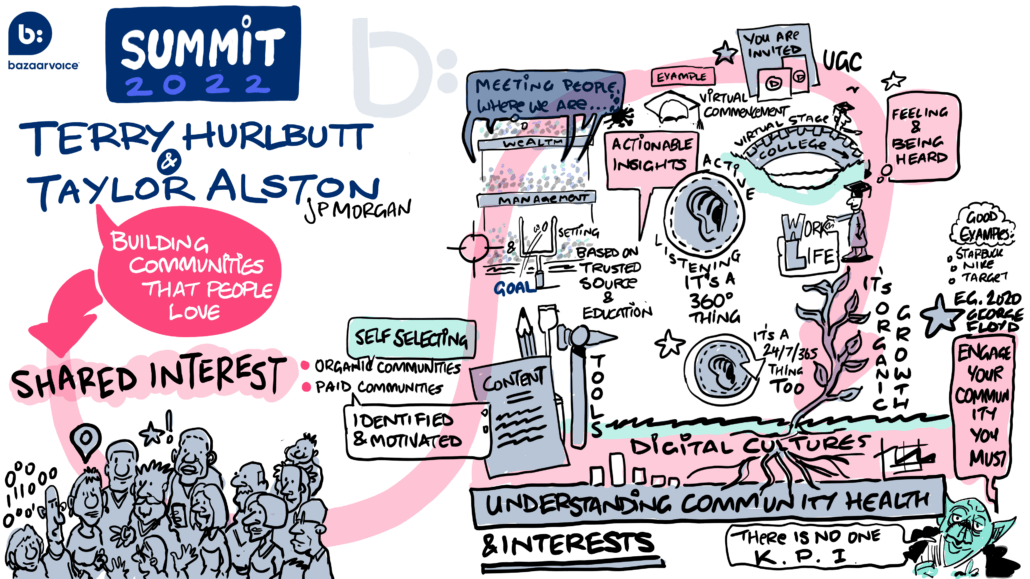 b:
bazaarvoice
SUMMIT
2022
TERRY HURLBUTT
&
TAYLOR ALSTON
JP MORGAN
BUILDING
COMMUNITIES
THAT PEOPLE
LOVE
SHARED INTEREST
SELF SELECTING
ORGANIC COMMUNITIES
PAID COMMUNITIES
IDENTIFIED
& MOTIVATED
b:
MEETING PEOPLE
WHERE WE ARE...
WEALTH
MANAGEMENT
& SETTING
GOAL
ACTIONABLE
INSIGHTS
BASED ON
TRUSTED
SOURCE
&
EDUCATION
CONTENT
TOOLS
EXAMPLE
VIRTUAL
COMMENCEMENT
YOU ARE
INVITED
UGC
VIRTUAL STAGE
COLLEGE
FEELING
&
BEING
HEARD
ACTIVE
LISTENING
IT'S A
360°
THING
WORK
LIFE
IT'S A
24/7/365
THING
TOO
IT'S ORGANIC
GROWTH
GOOD
EXAMPLES:
STARBUCK
NIKE
TARGET
EG. 2020
GEORGE
FLOYD
ENGAGE
YOUR
COMMUN
ITY
YOU
MUST
DIGITAL CULTURES
UNDERSTANDING COMMUNITY HEALTH
& INTERESTS
THERE IS NO ONE
K.P.I